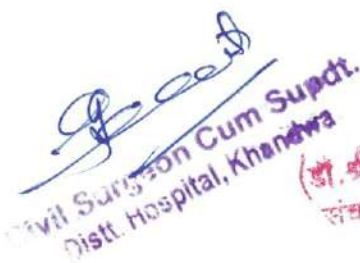 Civil Surgeon Cum Supdt.
Distt. Hospital, Khandwa